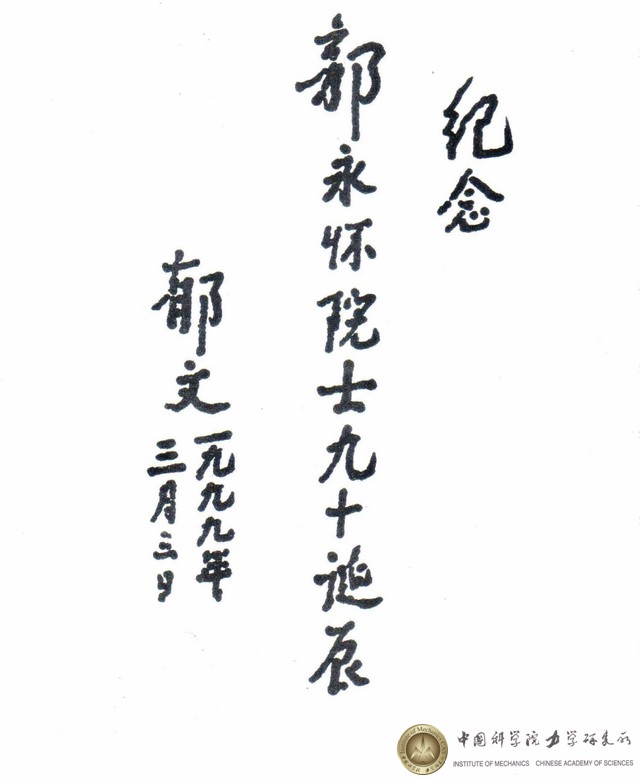 纪念
郭永怀院士九十诞辰
郁文
一九九九年
三月三日
中国科学院力学研究所
INSTITUTE OF MECHANICS CHINESE ACADEMY OF SCIENCES